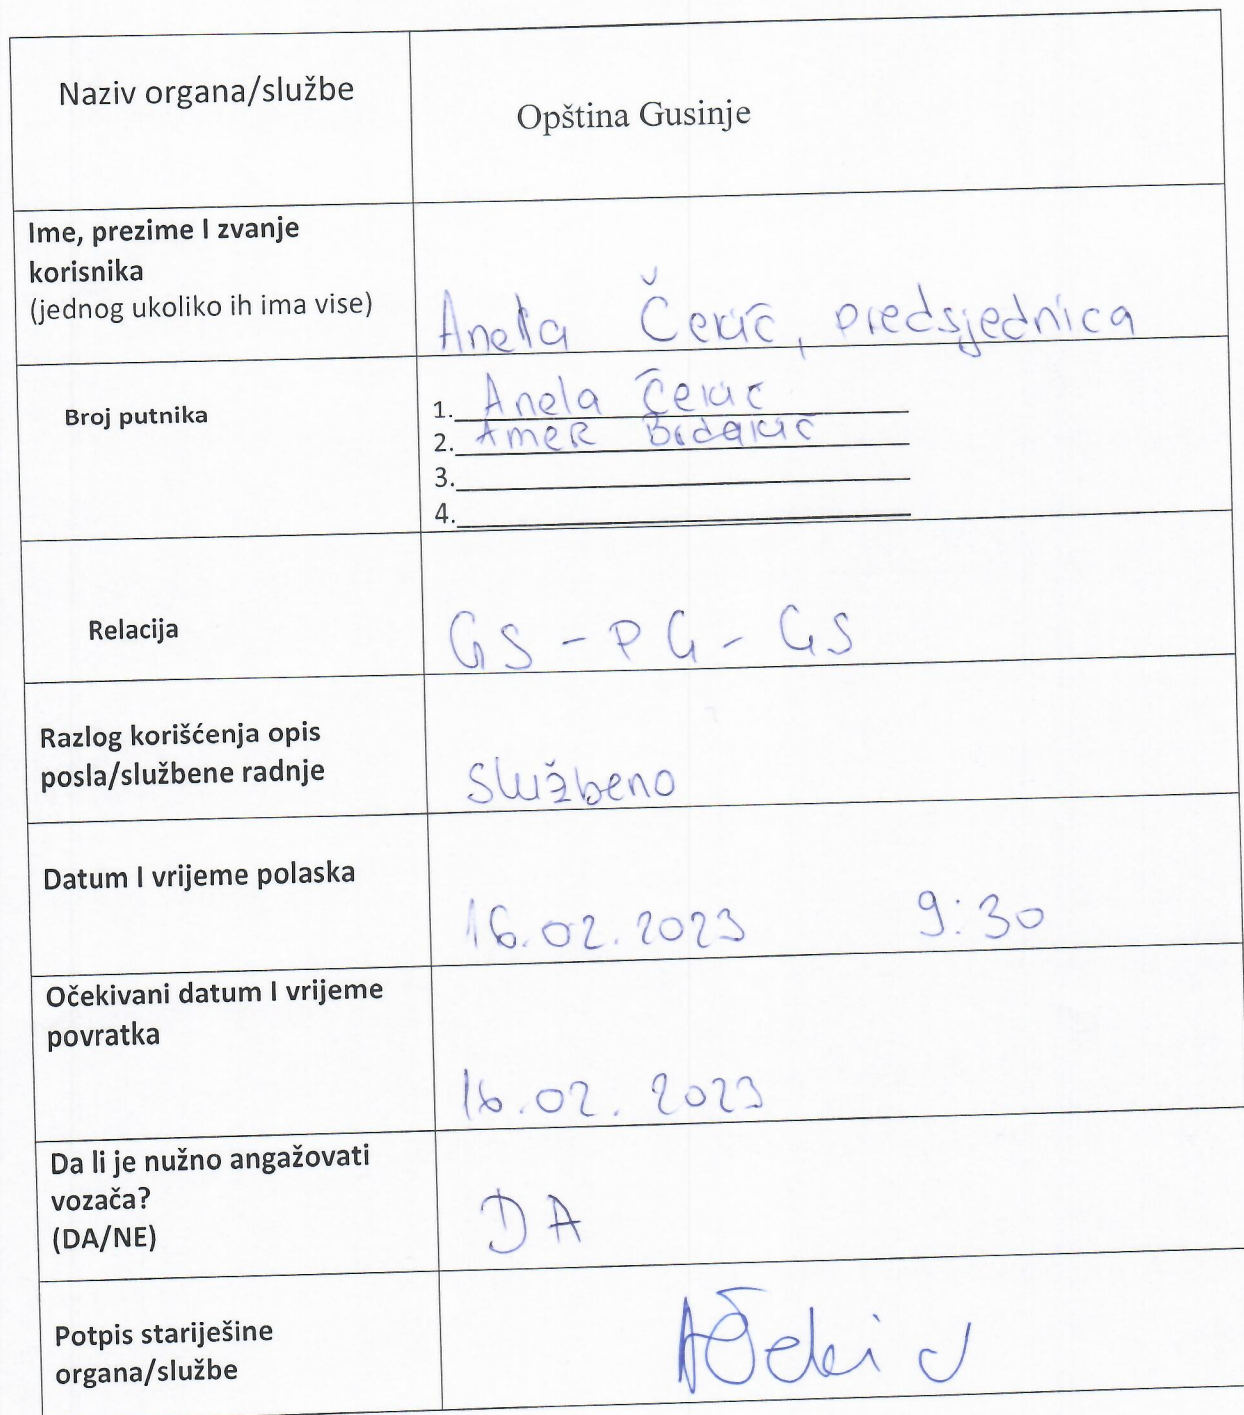 Naziv organa/službe
Opština Gusinje
Ime, prezime I zvanje
korisnika
(jednog ukoliko ih ima vise)
Anela Čekić, predsjednica
Broj putnika
1. Anela Čekić
2. Amer
3.
4.
Relacija
GS - PG - GS
Razlog korišćenja opis
posla/službene radnje
Službeno
Datum I vrijeme polaska
16.02.2023 9:30
Očekivani datum I vrijeme
povratka
16.02.2023
Da li je nužno angažovati
vozača?
(DA/NE)
DA
Potpis starijеšine
organa/službe
AČekić